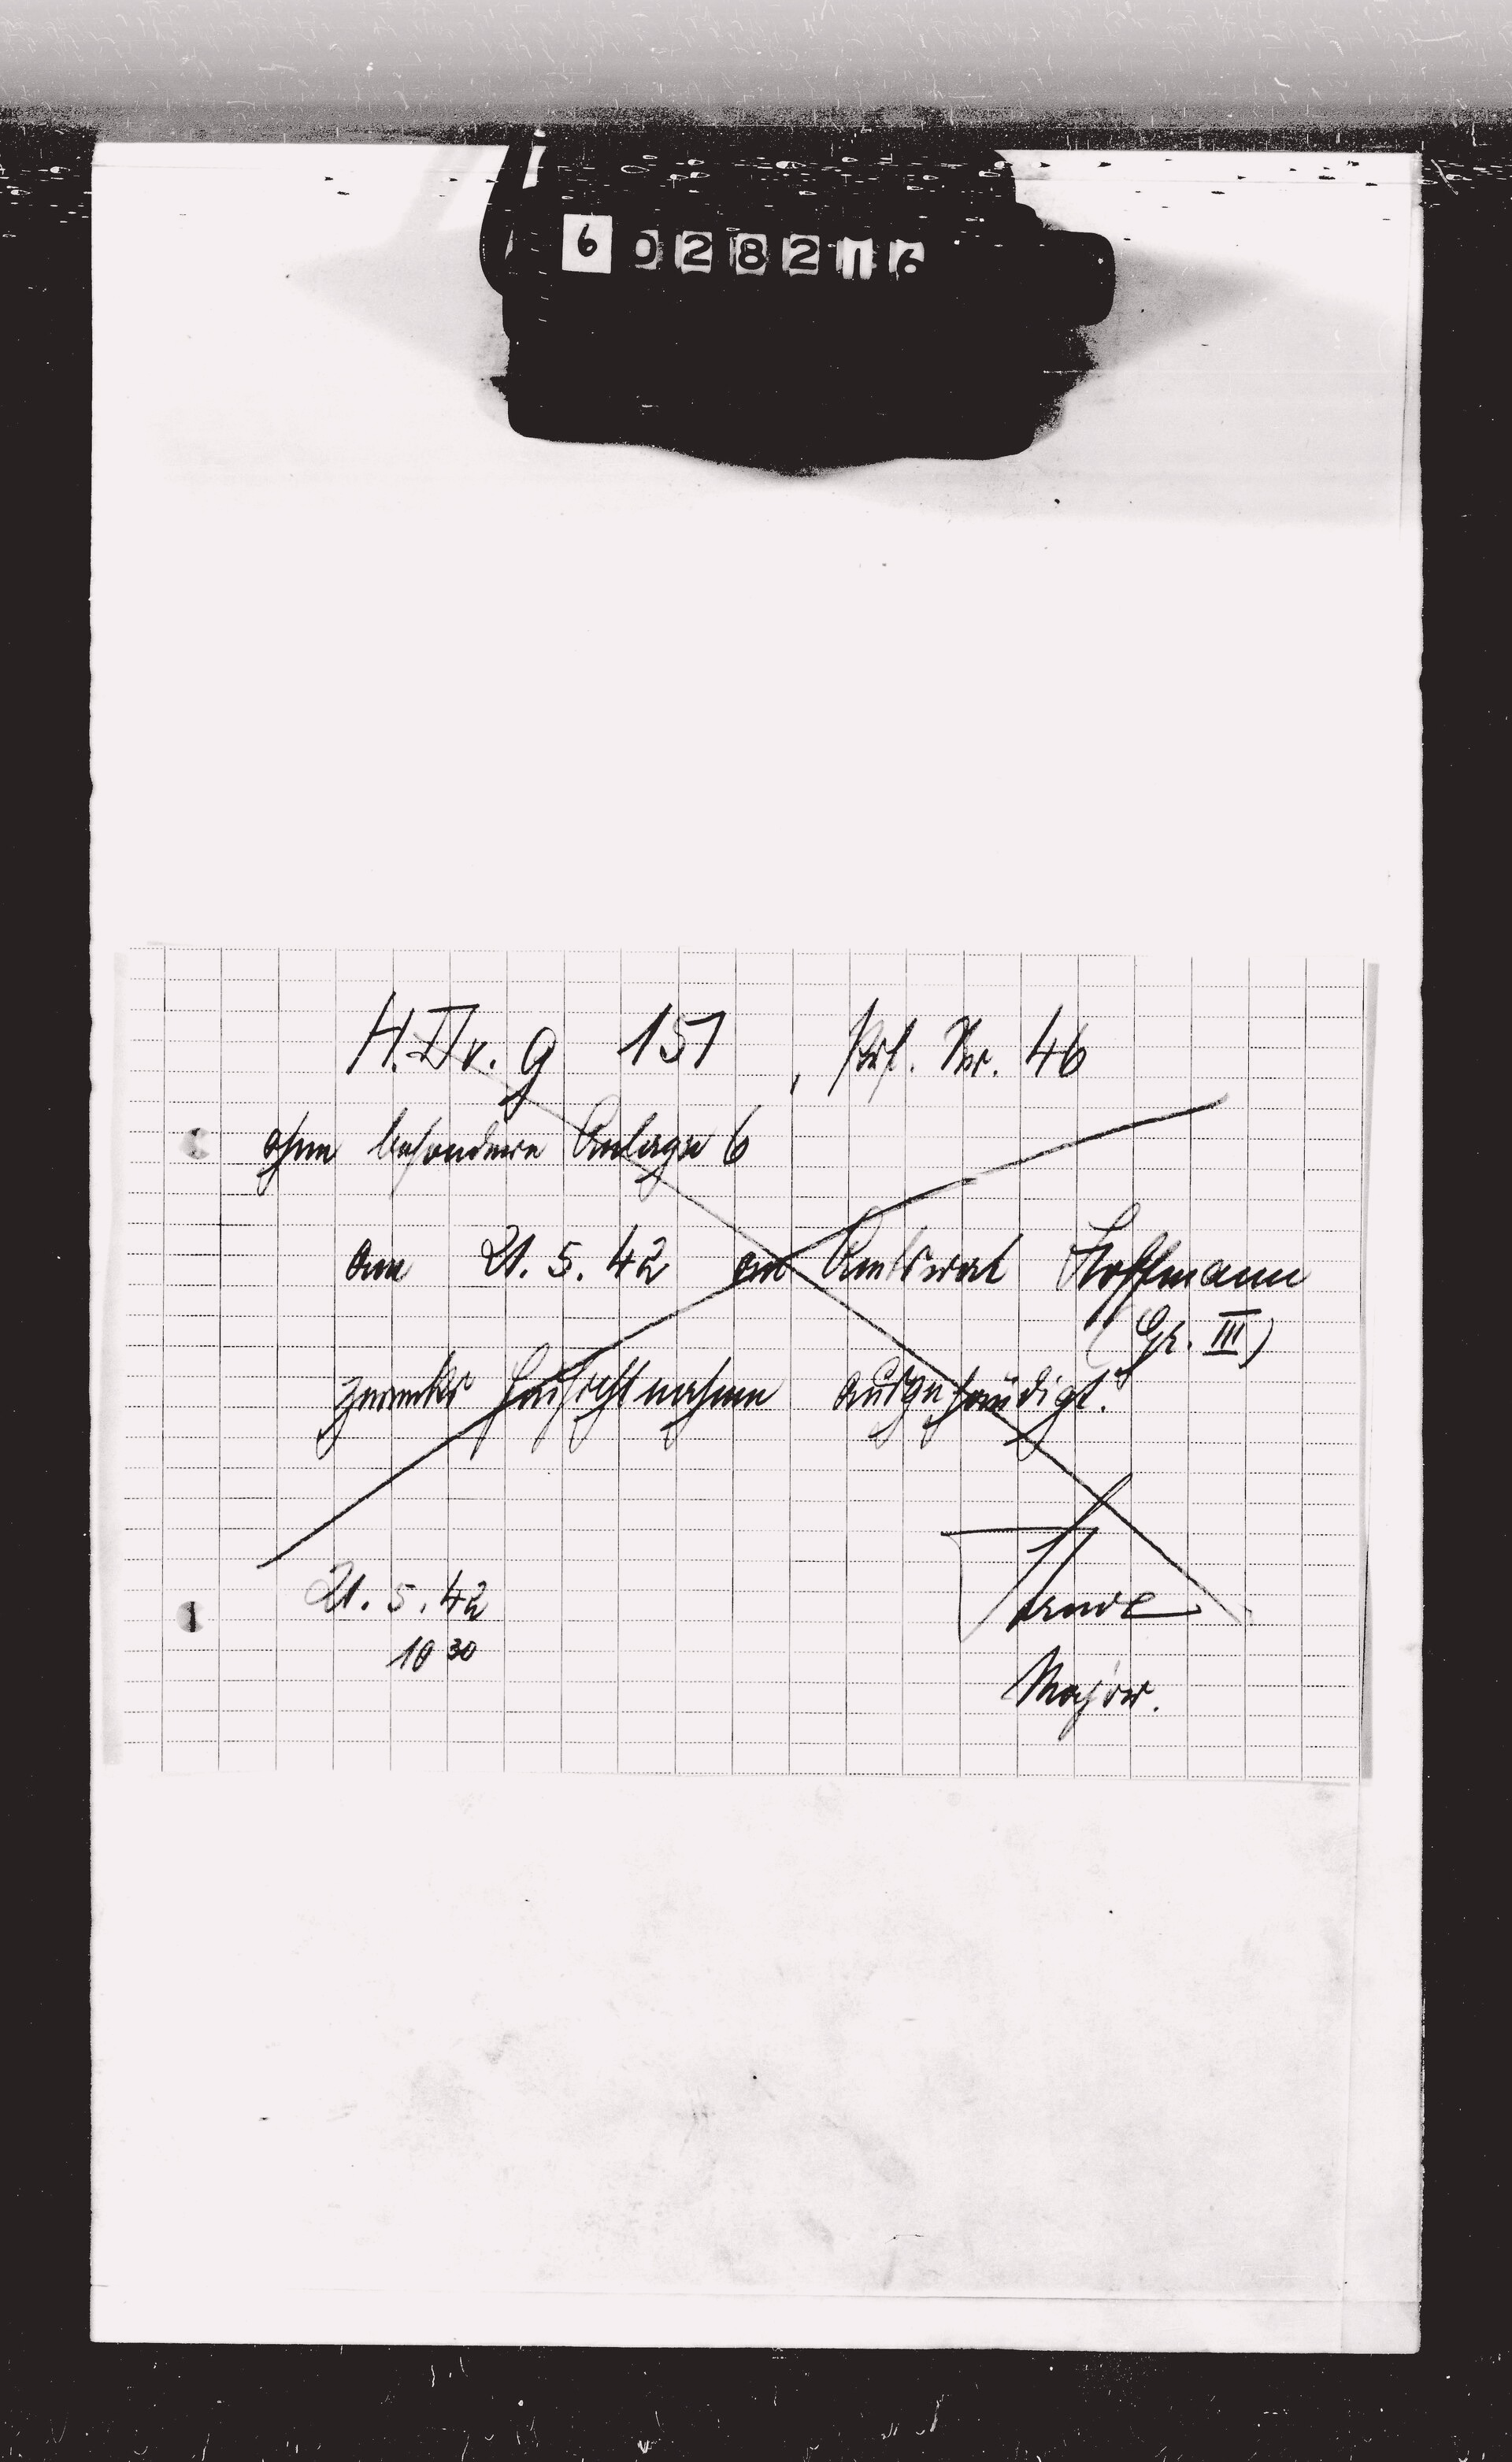 6028216
H.Dv. g 151, Prf. Nr. 46
ohne besondere Anlage 6
am 21.5.42 an Amtsrat Hoffmann
(Gr. III)
zwecks Einsichtnahme ausgehändigt.
21.5.42
10 30
Major.